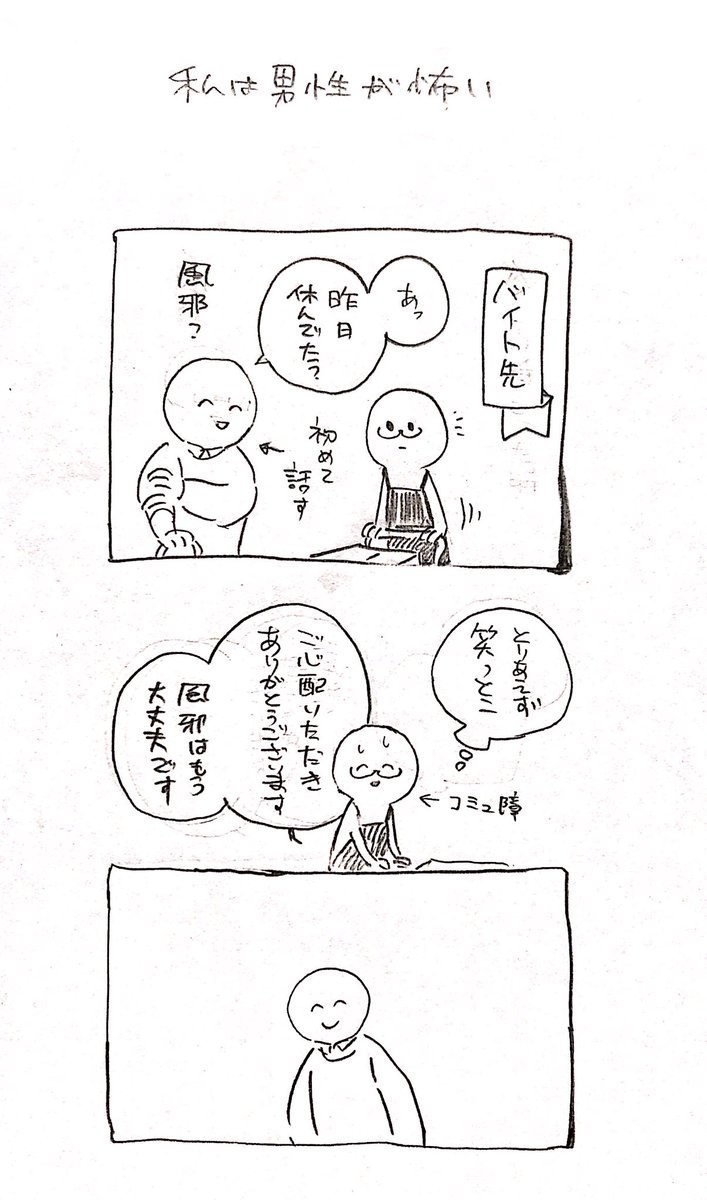 私は男性が怖い
バイト先
あっ
昨日
休んでた?
風邪?
初めて
話す
とりあえず
笑っとこ
ご心配いただき
ありがとうございます
風邪はもう
大丈夫です
←コミュ障